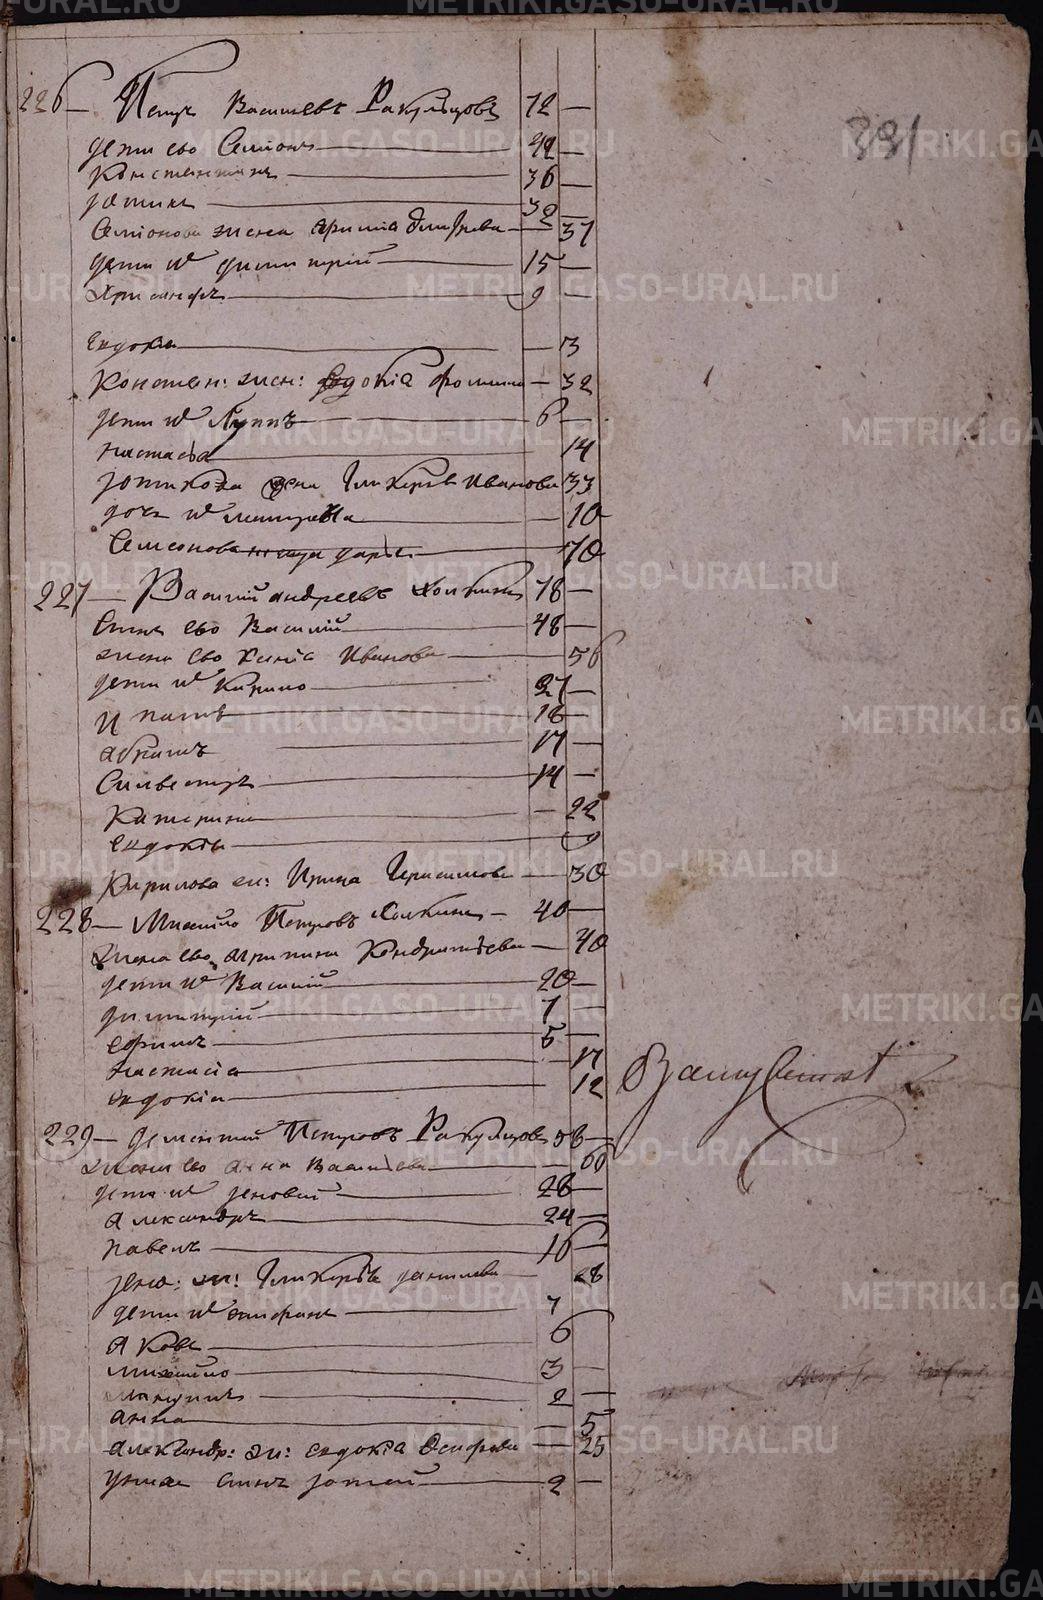 391
226 — Петръ Васильевъ Ракульцовъ 72 —
дети ево Семионъ 42 —
Константинъ 36 —
зотикъ 32 —
Семионова жена ирина дмитрева — 37
дети их димитрий 15 —
Хрисанфъ 9 —
Евдокия — 3
Констан: жен: Евдокіа фомина — 32
дети их Луппъ 6 —
настасья 14
зотикова жена Гликерья Иванова 33
дочь их матрена — 10
Семионова дарья 70
227 — Василий андреевъ Холкинъ 78 —
Сынъ ево Василий 48 —
жена ево Ивановна — 56
дети их Кирило 27 —
Ипатъ 18 —
абрамъ 17 —
Сильвестръ 14 —
Катерина — 22
евдокия 9
Кирилова ж: Ирина Герасимова — 30
228 — Михайло Петровъ Холкинъ — 40 —
жена ево агрипина Кондратьева — 40
дети их Василий 20 —
димитрий 7 —
ефимъ 5 —
настасіа — 17
евдокіа — 12
229 — дементий Петровъ Ракульцовъ 58 —
жена ево анна Васильева — 60
дети их зеновий 28 —
Александръ 24 —
павелъ 16 —
зено: ж: Гликерья данилова — 28
дети их епифанъ 7
Яковъ 6
михайло 3 —
2 —
анна — 5
александр: ж: евдокіа Осипова — 25
у них сынъ зотей 2 —
METRIKI.GASO-URAL.RU